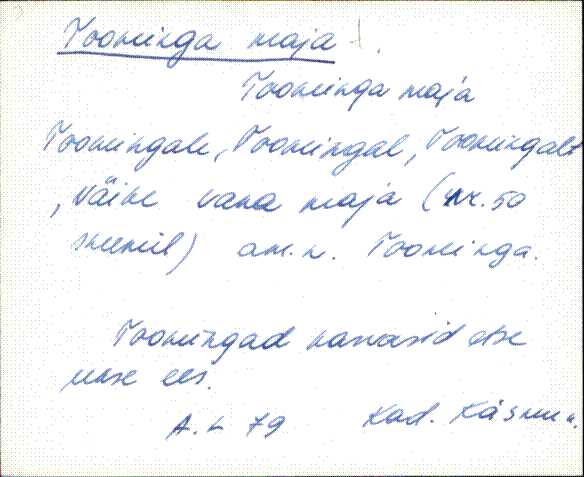 Toominga maja
Toominga maja
Toomingale, Toomingal, Toomingalt
, väike vana maja (nr. 50
skeemil) am. n. Toominga.
Toomingad kasvasid otse
ukse ees.
A. L 79 Kad. Käsmu k.